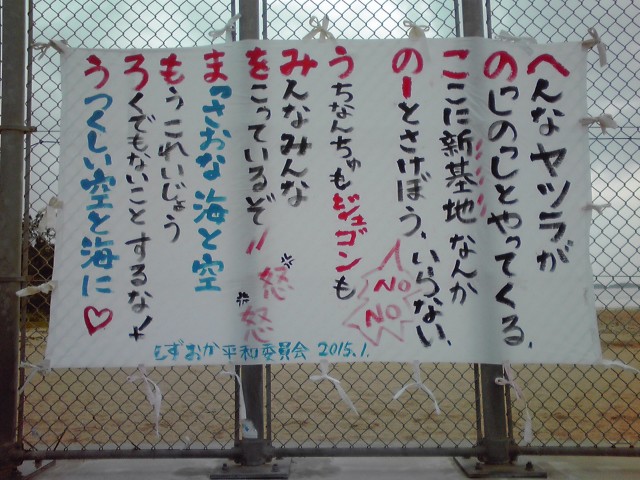 へんなヤツラが
のっしのっしとやってくる、
ここに新基地なんか
のーとさけぼう、いらない、
NO
NO
うちなんちゅもジュゴンも
みんなみんな
をこっているぞ!!
怒
怒
まっさおな海と空
もうこれいじょう
ろくでもないことするな!
うつくしい空と海に♡
しずおか平和委員会 2015.1.